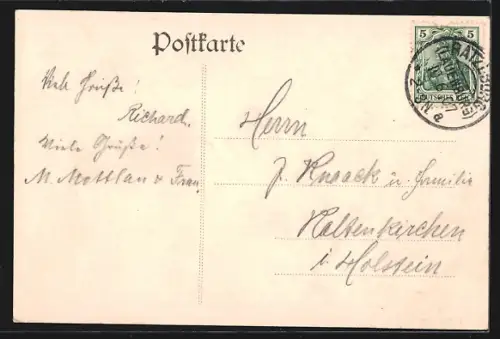 Postkarte
5 5
RATZEBURG
(LAUENBURG)
Viele Grüße!
Richard.
Viele Grüße!
M. Mottlau u Frau
Herrn
J. Knaack u. Familie
Kaltenkirchen
i. Holstein